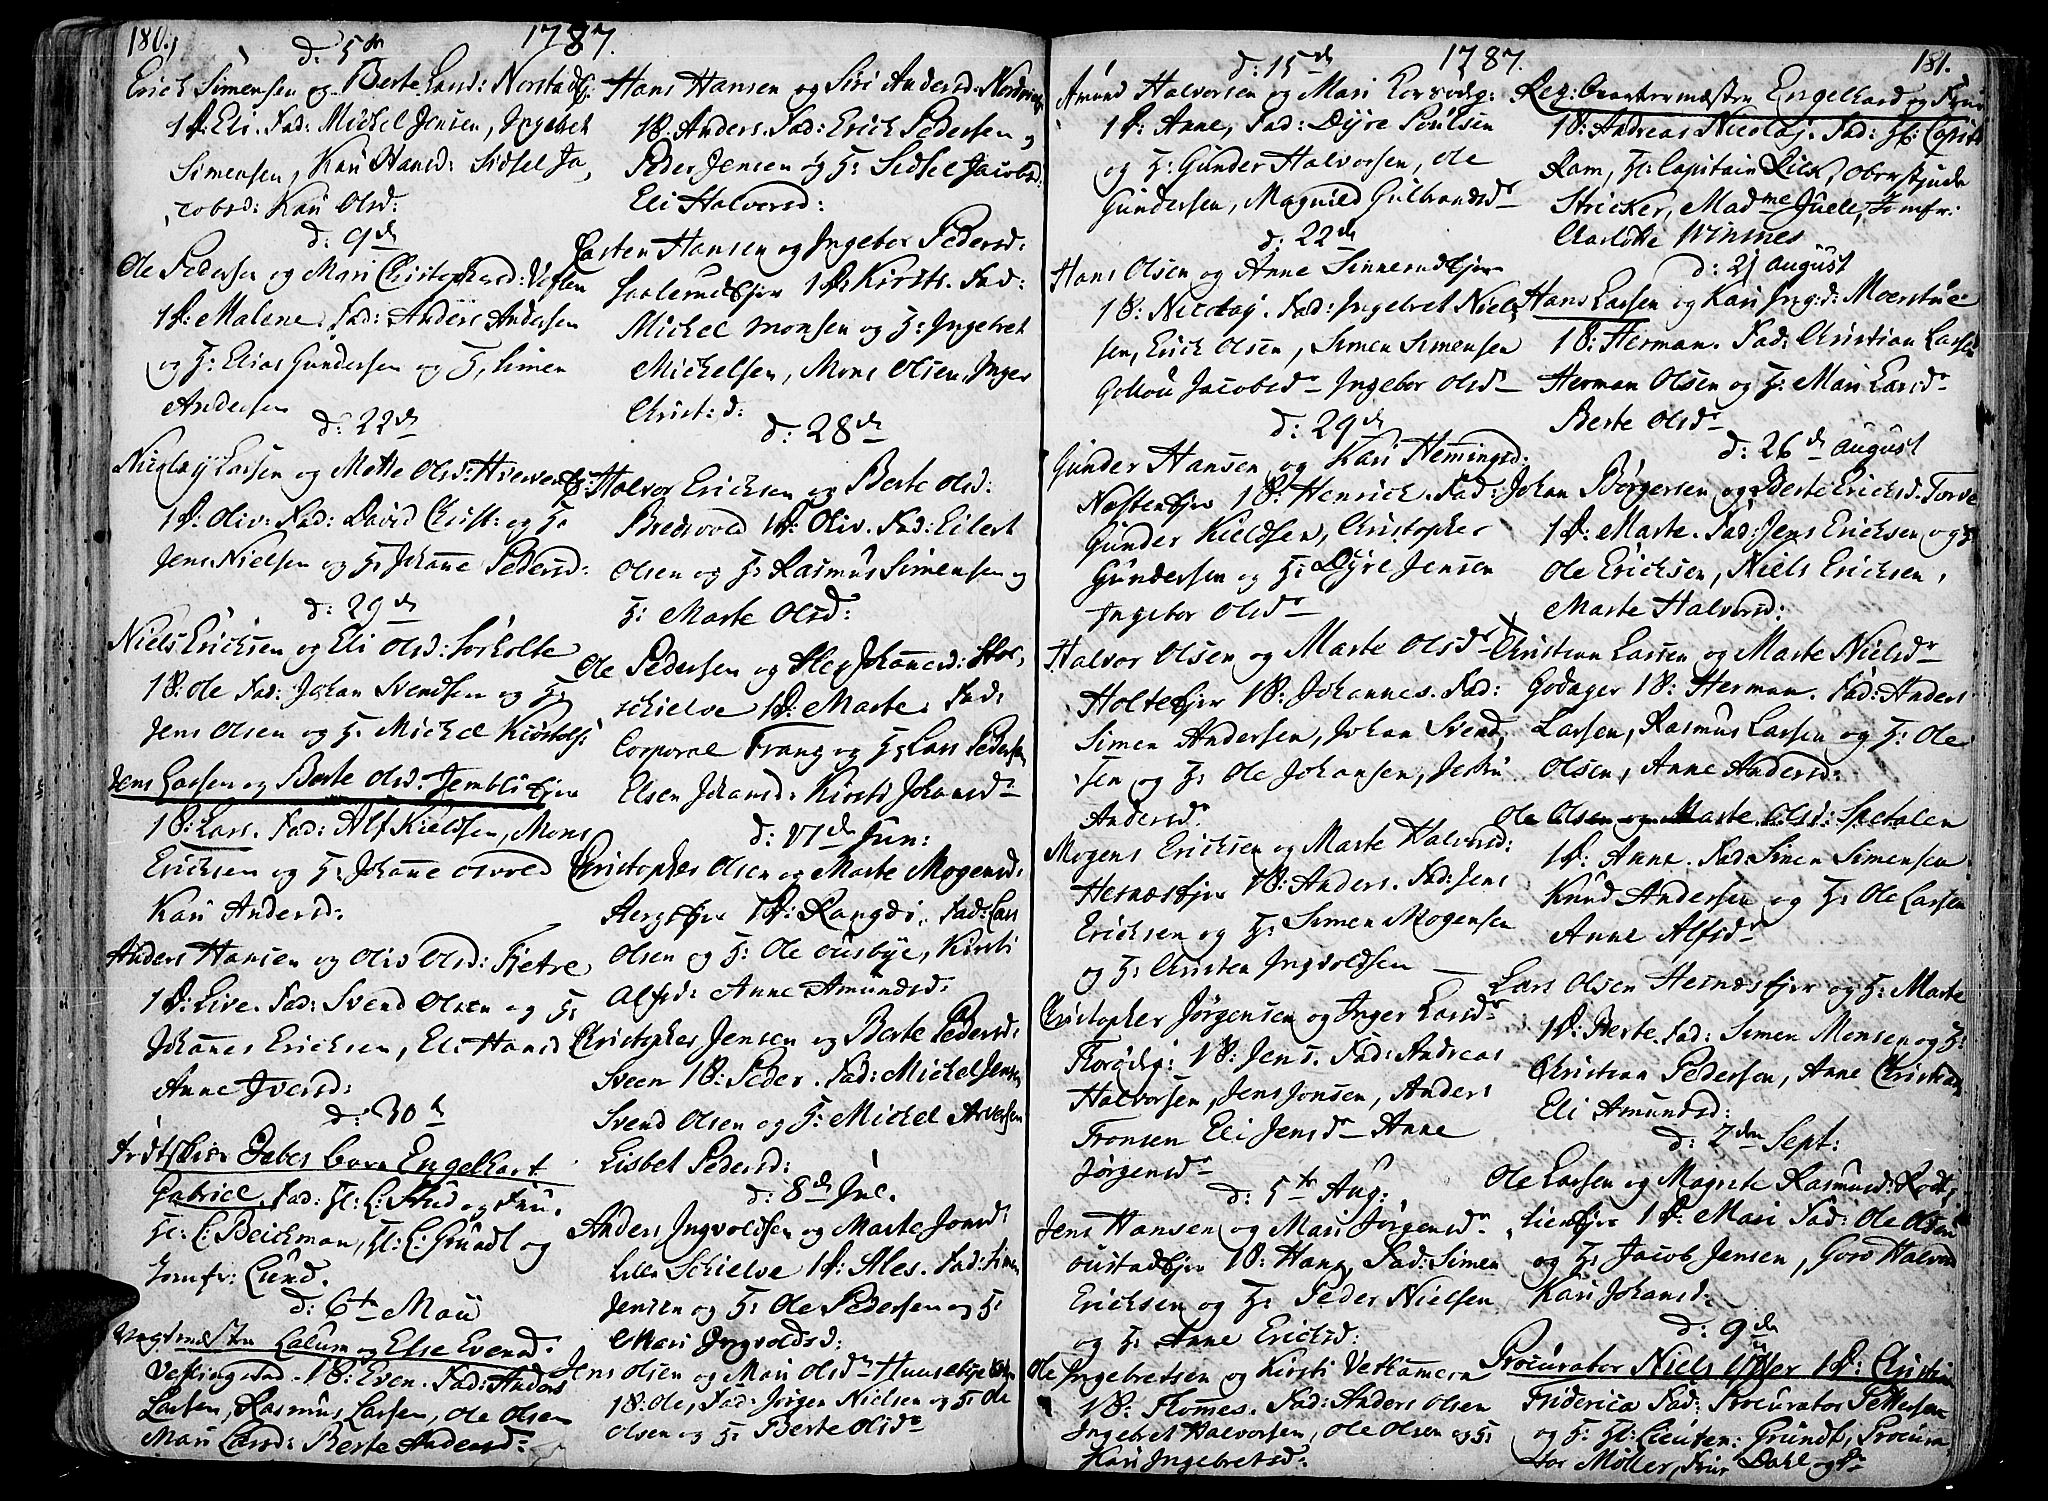 180.
1787.
d: 5te
Erich Simensen og Berte Larsd: Norstadej:
1 P: Eli. Fad: Michel Jensen, Ingebret
Simensen, Kari Hansd: Sidsel Ja,
cobsd: Kari Olsd:
d: 9de
Ole Pedersen og Mari Christophersd:
1 P: Malene. Fad: Anders Andersen
og H: Elias Gundersen og H, Simen
Andersen
d: 22de
Nicolay Larsen og Mette Olsd:
1 P: Oliv: Fad: David Christ: og H:
Jens Nielsen og H: Johanne Pedersd:
d: 29de
Niels Ericksen og Eli Olsd: Sorholte
1 B: Ole Fad: Johan Svendsen og H:
Jens Olsen og H: Michel
Jens Larsen og Berte Olsd: Jembli Ejer
1 B: Lars. Fad: Alf Kieldsen, Mons
Ericksen og H: Johanne Osvold
Kari Andersd:
Anders Hansen og Oliv Olsd: Fietre
1 P: Live. Fad: Svend Olsen og H:
Johannes Ericksen, Eli Hansd
Anne Iversd:
d: 30te
Engelhart
Gabriel. Fad: Hl: C: Stud og Fru,
Hl: C: Beichman, Hl: C: Grundt og
Jomfr: Lund.
d: 6te Maii
Vagtmester Lalum og Else Evensd:
1 B: Even. Fad: Anders
Larsen, Rasmus Larsen, Ole Olsen
Mari Larsd: Berte Andersd:
Hans Hansen og Siri Andersd:
1 B: Anders. Fad: Erich Pedersen,
Peder Jensen og H: Sidsel Jacobsd:
Eli Halvorsd:
Carsten Hansen og Ingebor Pedersd:
1 P: Kirsti. Fad:
Michel Monsen og H: Ingebret
Michelsen, Mons Olsen, Inger
Christ: d:
d: 28de
Halvor Ericksen og Berte Olsd:
Bredvold 1 P: Oliv. Fad: Eilert
Olsen og H: Rasmus Simensen og
H: Marte Olsd:
Ole Pedersen og Johannesd: Stor,
schielve 1 P: Marte. Fad:
Corporal Frang og H: Lars Pedersen
Elsen Johansd: Kirsti Johansdr
d: 17de Jun:
Christopher Olsen og Marte Mogensd:
1 P: Rangdi. Fad: Lars
Olsen og H: Ole Ousbye, Kirsti
Alfsd: Anne Amundsd:
Christopher Jensen og Berte Pedersd:
Sveen 1 B: Peder. Fad: Michel Jensen
Svend Olsen og H: Michel Arvesen
Lisbet Pedersd:
d: 8de Jul.
Anders Ingvoldsen og Marte Jonsd:
Lille Schielve 1 P: Ales. Fad: Simen
Jensen og H: Ole Pedersen og H:
Mari Ingvoldsd:
Jens Olsen og Mari Olsdr
1 B: Ole, Fad: Jørgen Nielsen og H: Ole
Olsen og H: Berte Olsdr
1787.
181.
d: 15de
Amund Halvorsen og Mari
1 P: Anne, Fad: Dyre Poulsen
og H: Gunder Halvorsen, Ole
Gundersen, Magnild Gulbrandsdr
d: 22de
Hans Olsen og Anne Sinnerud Ejer
1 B: Nicolay. Fad: Ingebret Niel,
sen, Erick Olsen, Simen Simensen
Gollou Jacobsdr Ingebor Olsdr
d: 29de
Gunder Hansen og Kari Hemingsd:
Næsten Ejer 1 B: Henrick. Fad:
Gunder Kieldsen, Christopher
Gundersen og H: Dyre Jensen
Ingebor Olsdr
Halvor Olsen og Marte Olsdr
Holte Ejer 1 B: Johannes. Fad:
Simen Andersen, Johan Svend,
sen og H: Ole Johansen,
Andersdr
Mogens Ericksen og Marte Halvorsd:
Hernæs Ejer 1 B: Anders. Fad: Jens
Ericksen og H: Simen Mogensen
og H: Christen Ingvoldsen
Christopher Jørgensen og Inger Larsdr
1 B: Jens. Fad: Andreas
Halvorsen, Jens Jonsen, Anders
Fronsen Eli Jensdr Anne
Jørgensdr
d: 5te Aug:
Jens Hansen og Mari Jørgensdr
Oustad Ejer 1 B: Hans, Fad: Simen
Ericksen og H: Peder Nielsen
og H: Anne Ericksd:
Ole Ingebretsen og Kirsti Vetlamoen
1 B: Tommes. Fad: Anders Olsen
Ingebret Halvorsen, Ole Olsen og H:
Kari Ingebretsd:
Reg: Qvartermæster Engelhard og Frue
1 B: Andreas Nicolay. Fad: Hl: Capit:
Ram, Hl: Capitain Rick, Oberstinde
Stricker, Madme Juell, Jomfr:
Charlotte Wimmes
d: 21 August
Hans Larsen og Kari Ing: d: Moerstue
1 B: Herman. Fad: Christian Larsen
Herman Olsen og H: Mari Larsdr
Berte Olsdr
d: 26de August
Johan Børgersen og Berte Ericksd. Torve
1 P: Marte. Fad: Jens Ericksen og H
Ole Ericksen, Niels Ericksen,
Marte Halvorsd:
Christian Larsen og Marte Nielsdr
Godager 1 B: Herman. Fad: Anders
Larsen, Rasmus Larsen og H: Ole
Olsen, Anne Andersd:
Ole Olsen og Marte Olsd: Spetalen
1 P: Anne. Fad: Simen Simensen
Knud Andersen og H: Ole Larsen
Anne Alfsdr
Lars Olsen Hernæs Ejer og H: Marte
1 P: Berte. Fad: Simen Monsen og H:
Christian Pedersen, Anne Christiansd
Eli Amundsd:
d: 2den Sept:
Ole Larsen og Magrete Rasmusd:
1 P: Mari Fad: Ole Olsen
og H: Jacob Jensen, Goro Halvorsd
Kari Johansd:
d: 9de
Procurator Niels Møller 1 P: Christine
Friderica Fad: Procurator Pettersen
og H: Hl: Lieuten: Grundt, Procura,
tor Møller, Frue Dahl og